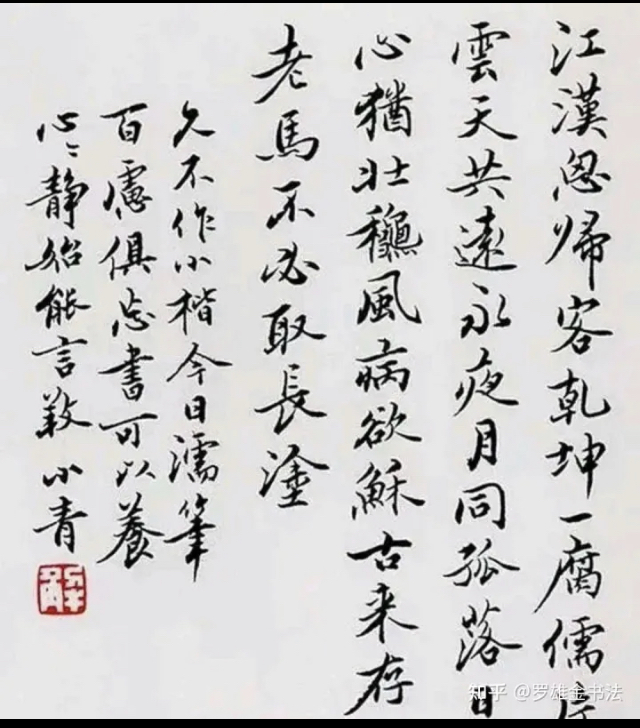 江漢思歸客乾坤一腐儒片
雲天共遠永夜月同孤落日
心猶壯穐風病欲穌古来存
老馬不必取長塗
久不作小楷今日濡筆
百慮俱忘書可以養
心〻靜始能言敬小青
知乎 @罗雄金书法